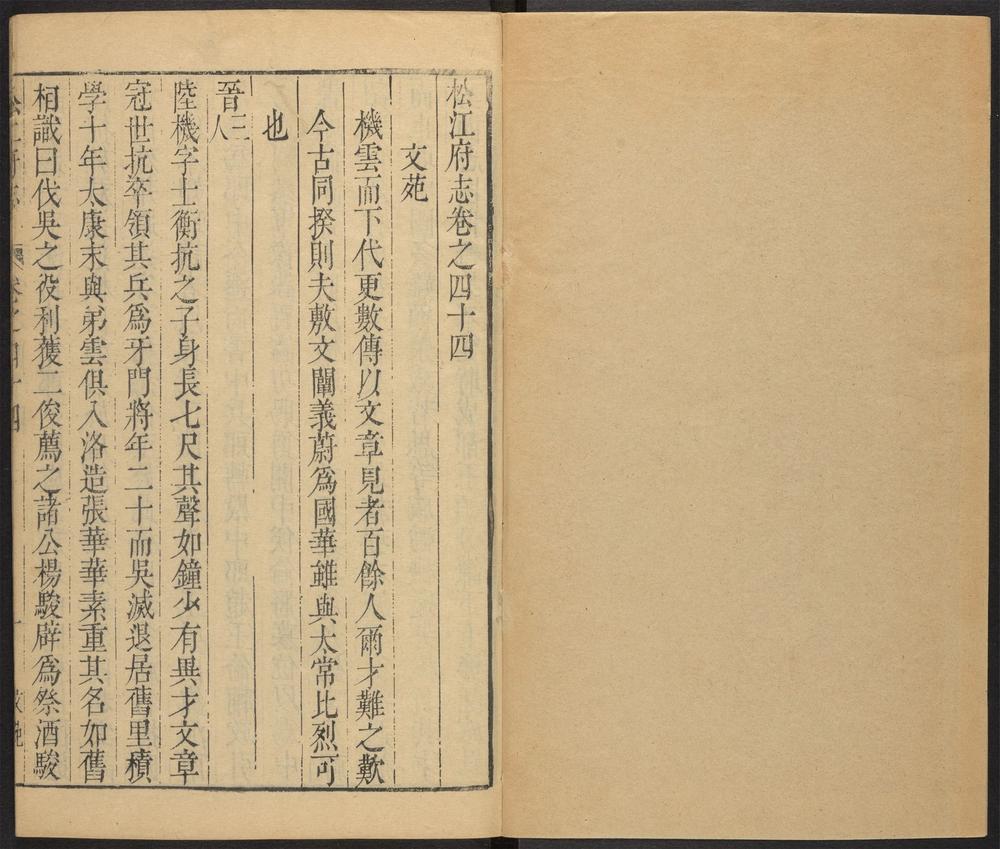 松江府志卷之四十四
文苑
機雲而下代更數傳以文章見者百餘人爾才難之歎
今古同揆則夫敷文闡義蔚爲國華雖與太常比烈可
也
晉三人
陸機字士衡抗之子身長七尺其聲如鐘少有異才文章
冠世抗卒領其兵爲牙門將年二十而吳滅退居舊里積
學十年太康末與弟雲俱入洛造張華華素重其名如舊
相識曰伐吳之役利獲二俊薦之諸公楊駿辟爲祭酒駿
松江府志 卷之四十四 一 文苑